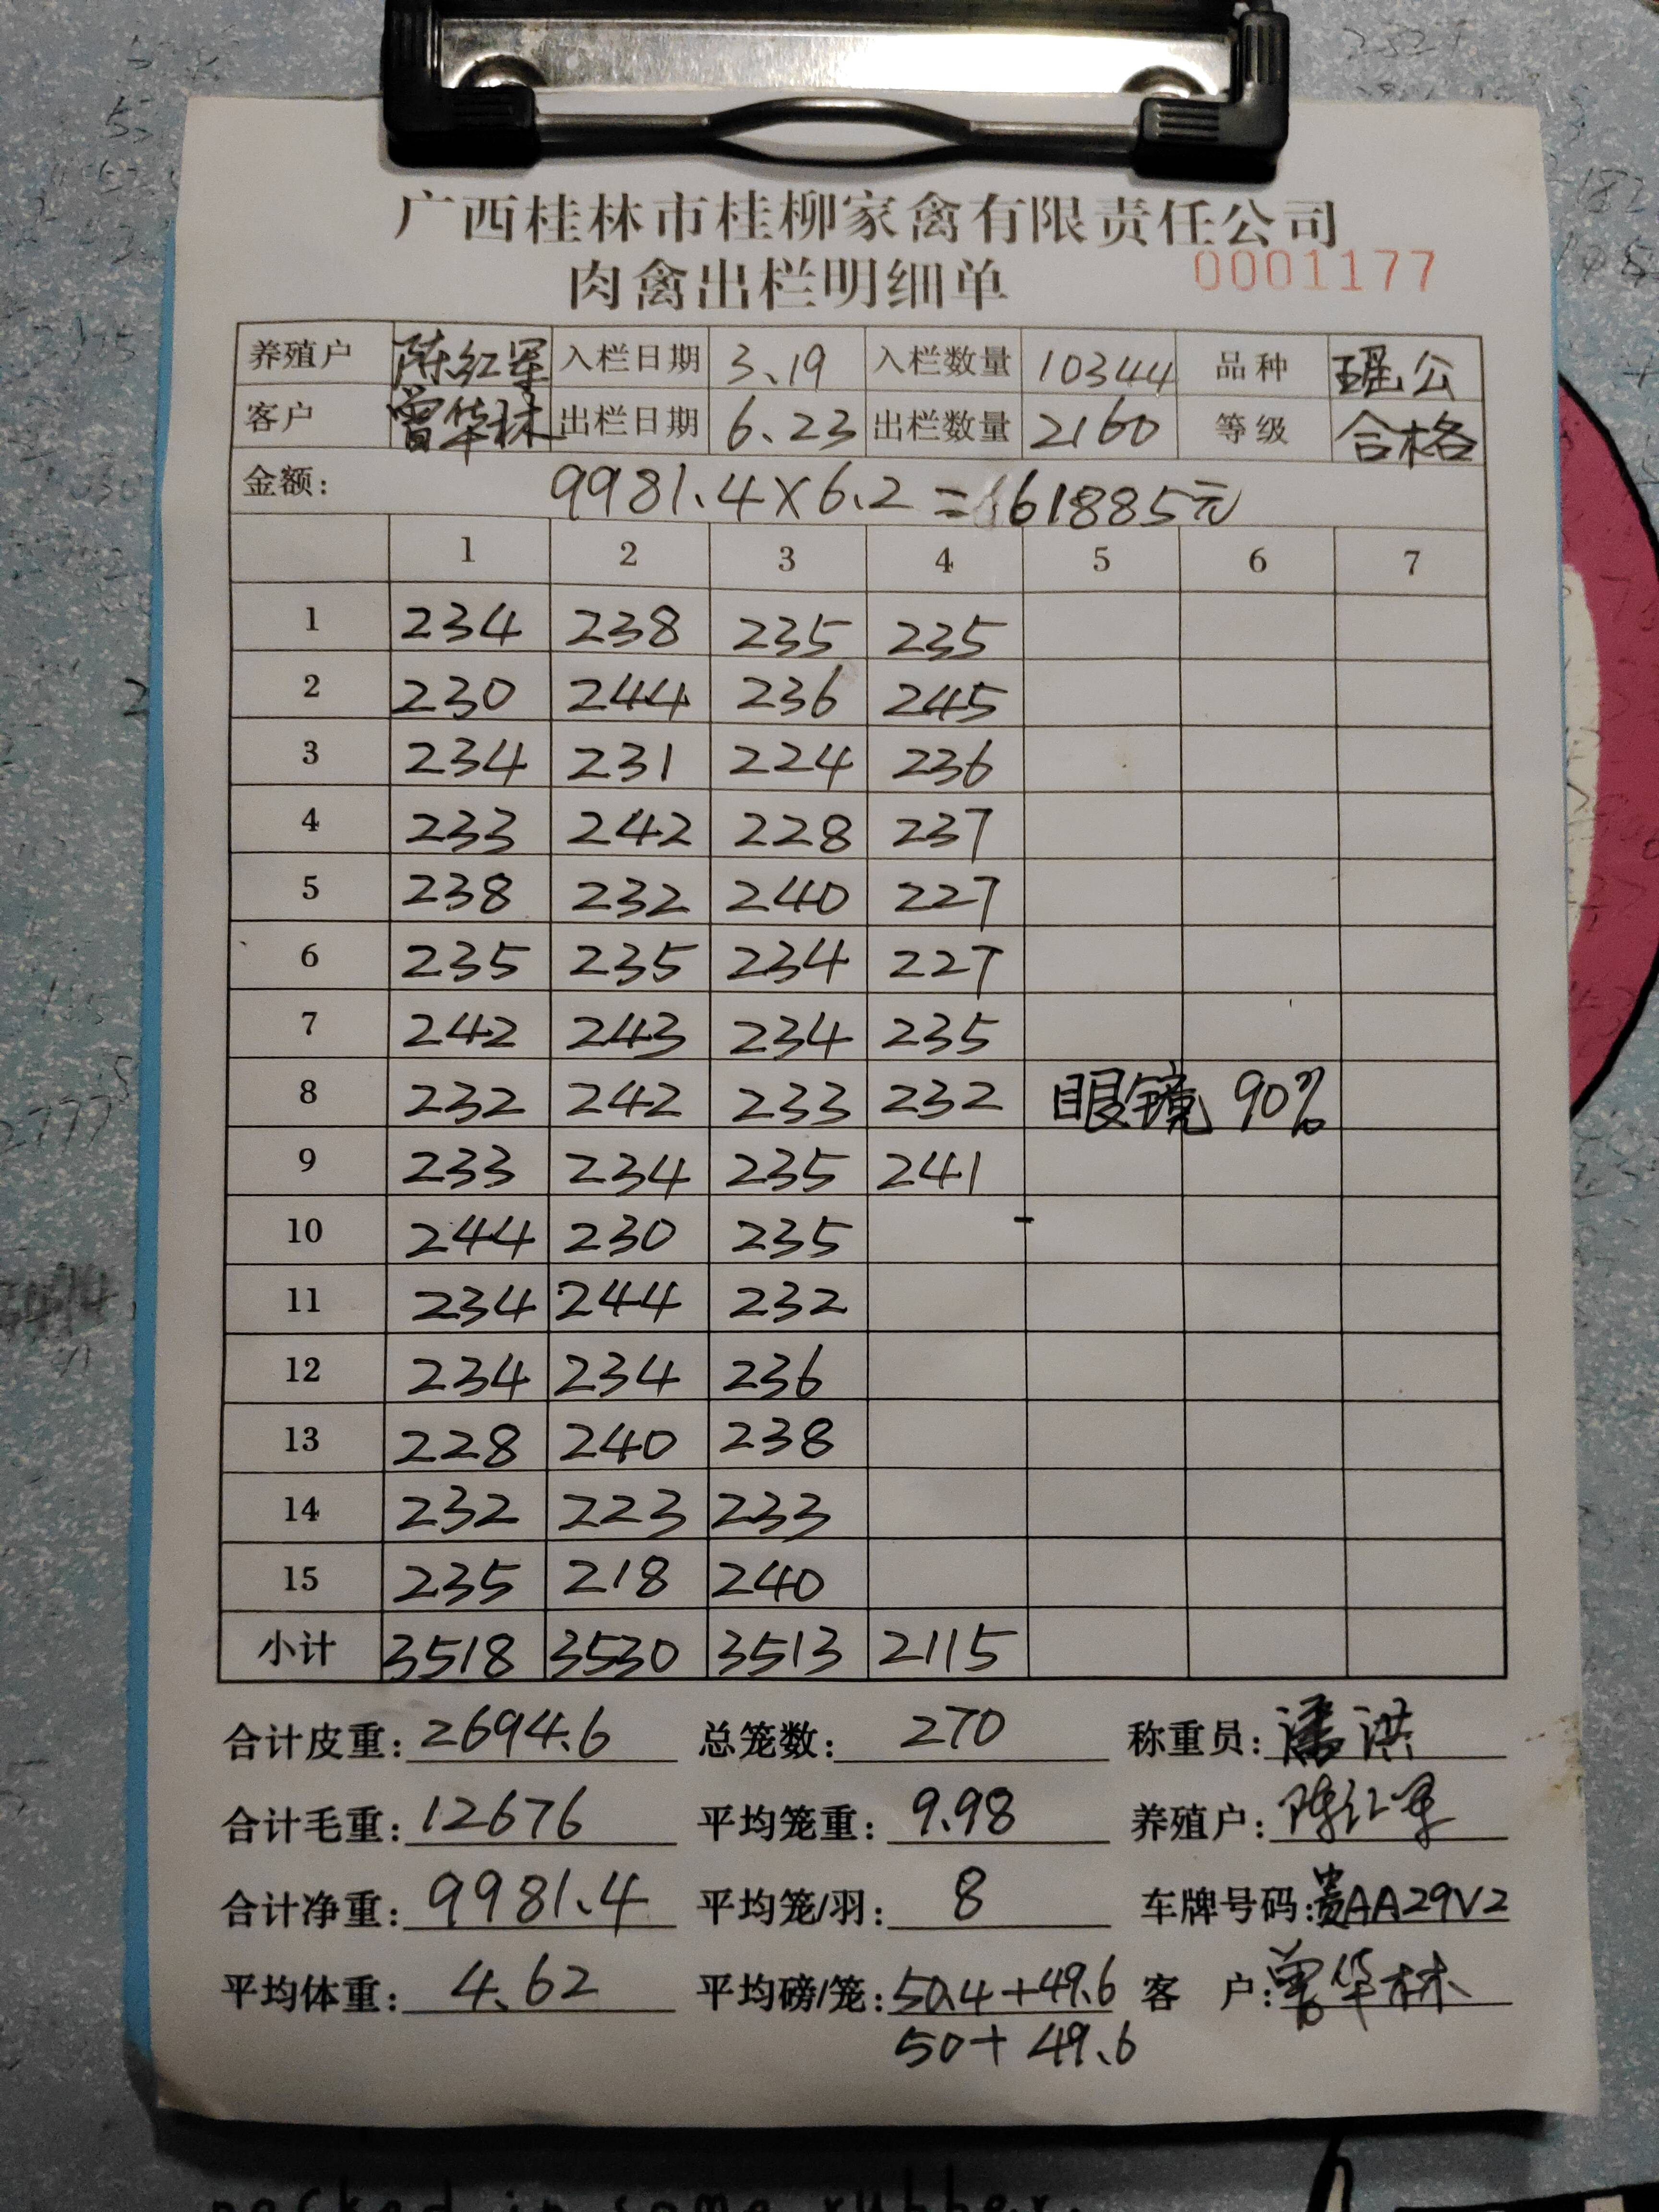 广西桂林市桂柳家禽有限责任公司
肉禽出栏明细单 0001177
养殖户 陈红军 入栏日期 3.19 入栏数量 10344 品种 瑶公
客户 曾华林 出栏日期 6.23 出栏数量 2160 等级 合格
金额: 9981.4×6.2=61885元
1 2 3 4 5 6 7
1 234 238 235 235
2 230 244 236 245
3 234 231 224 236
4 233 242 228 237
5 238 232 240 227
6 235 235 234 227
7 242 243 234 235
8 232 242 233 232 眼镜 90%
9 233 234 235 241
10 244 230 235
11 234 244 232
12 234 234 236
13 228 240 238
14 232 223 233
15 235 218 240
小计 3518 3530 3513 2115
合计皮重: 2694.6 总笼数: 270 称重员: 潘洪
合计毛重: 12676 平均笼重: 9.98 养殖户: 陈红军
合计净重: 9981.4 平均笼/羽: 8 车牌号码: 贵AA29V2
平均体重: 4.62 平均磅/笼: 50.4+49.6 客 户: 曾华林
50+49.6
packed in some rubber.